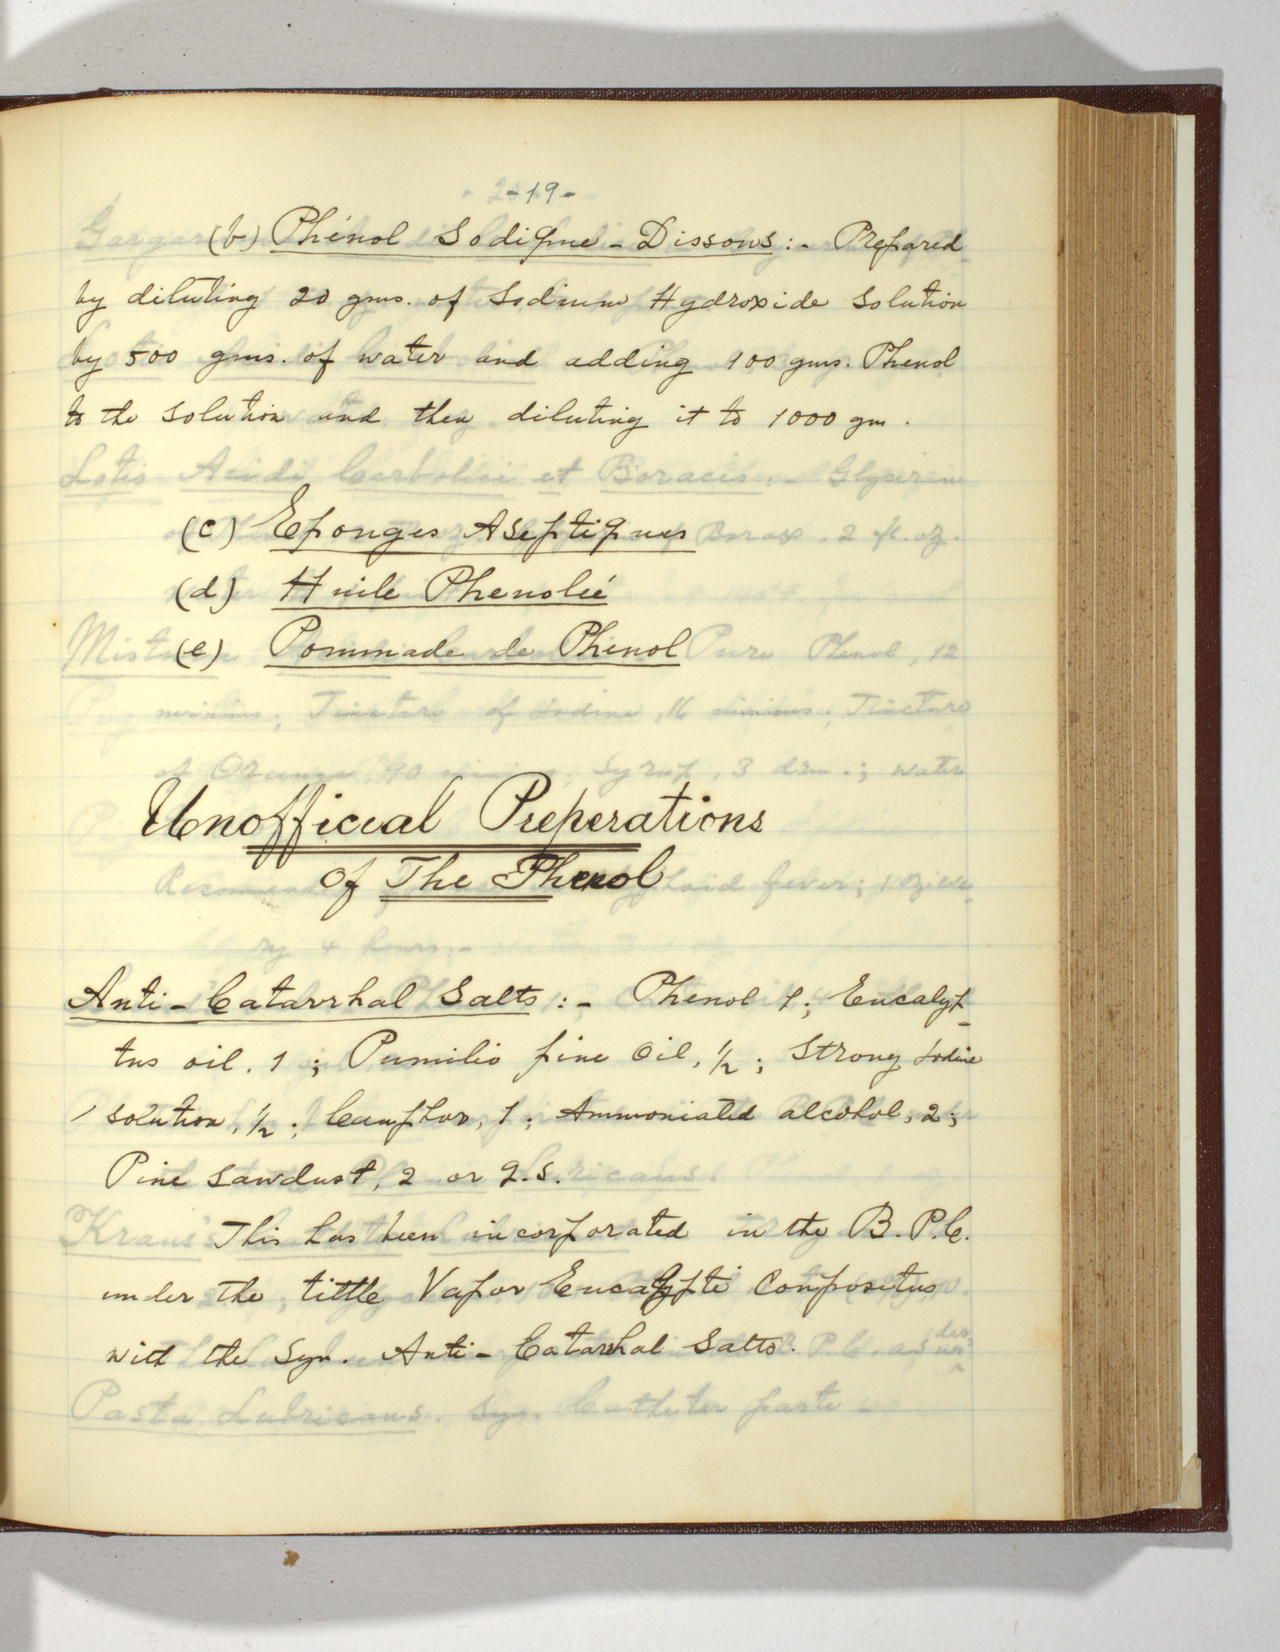 -19-
(b) Phénol Sodique - Dissons :- Prepared
by diluting 20 gms. of Sodium Hydroxide Solution
by 500 gms. of water and adding 100 gms. Phenol
to the Solution and then diluting it to 1000 gm.
(c) Eponges Aseptiques
(d) Huile Phenoleé
(e) Pommade de Phénol
Unofficial Preperations
Of The Phenol
Anti-Catarrhal Salts :- Phenol 1; Eucalyp-
tus oil, 1; Pumilio pine Oil, ½; Strong Iodine
solution, ½; Camphor, 1; Ammoniated alcohol, 2;
Pine Sawdust, 2 or q.s.
This has been incorporated in the B.P.C.
under the tittle Vapor Eucalypti Compositus
with the Syn. Anti-Catarrhal Salts.